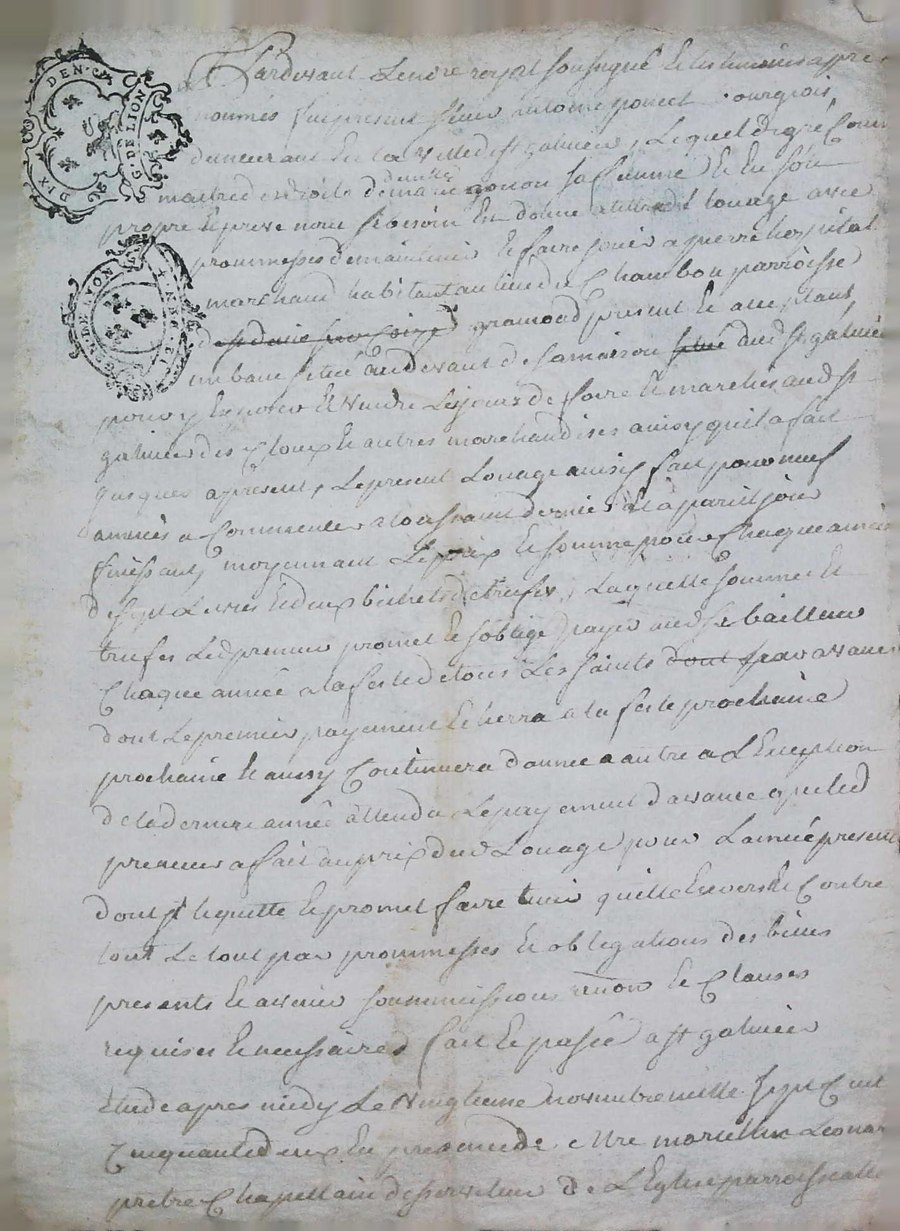 DIX DEN.
G. DE LION
GEN. DE LYON
Pardevant Lenore royal soussigné et les temoins apprè
nommés fut present sieur antoine poncet Bourgeois
demeurant en la ville de st galmier, Lequel de gré Comme
maitre des droits de marie gonon sa femme Et en son
propre Et prive nom Et donne a titre de louage avec
prommesse de maintenir Et faire jouir a pierre hospital
marchand habitant au lieu de Chambon parroisse
de gramond present Et acceptant
un banc situé au devant de sa maison situé aud st galmier
pour y Exposer Et vendre Les jours de foire Et marches aud st
galmier des Cloux Et autres marchandises ainsy quil a fait
jusques apresent, Le present Louage ainsy fait pour neuf
années a Commencer a la toussaint derniere Et a pareil jour
finissant, moyennant Le prix Et somme pour Chaque année
de sept Livres Et deux bichets de trufes, Laquelle somme Et
trufes Led preneur promet Et soblige payer aud sr bailleur
Chaque année a la feste de tous Les saints dont par avance
dont Le premier payement Echerra a la feste prochaine
prochaine Et ainsy Continuera dannée a autre a LException
de la derniere année attendu Le payement davance que led
preneur a fait du prix dud Louage pour Lannée presente
dont st le quitte Et promet faire tenir quitte Envers Et Contre
tout Le tout par prommesses Et obligations des biens
presents Et avenir soummissions renon Et Clauses
requises Et necessaires fait Et passé a st galmier
Etude apres midy Le vingtieme novembre mille sept Cent
Cinquante deux En presence de Mre marcellin Leonard
prêtre Chapellain desserviteur De LEglise parroissialle